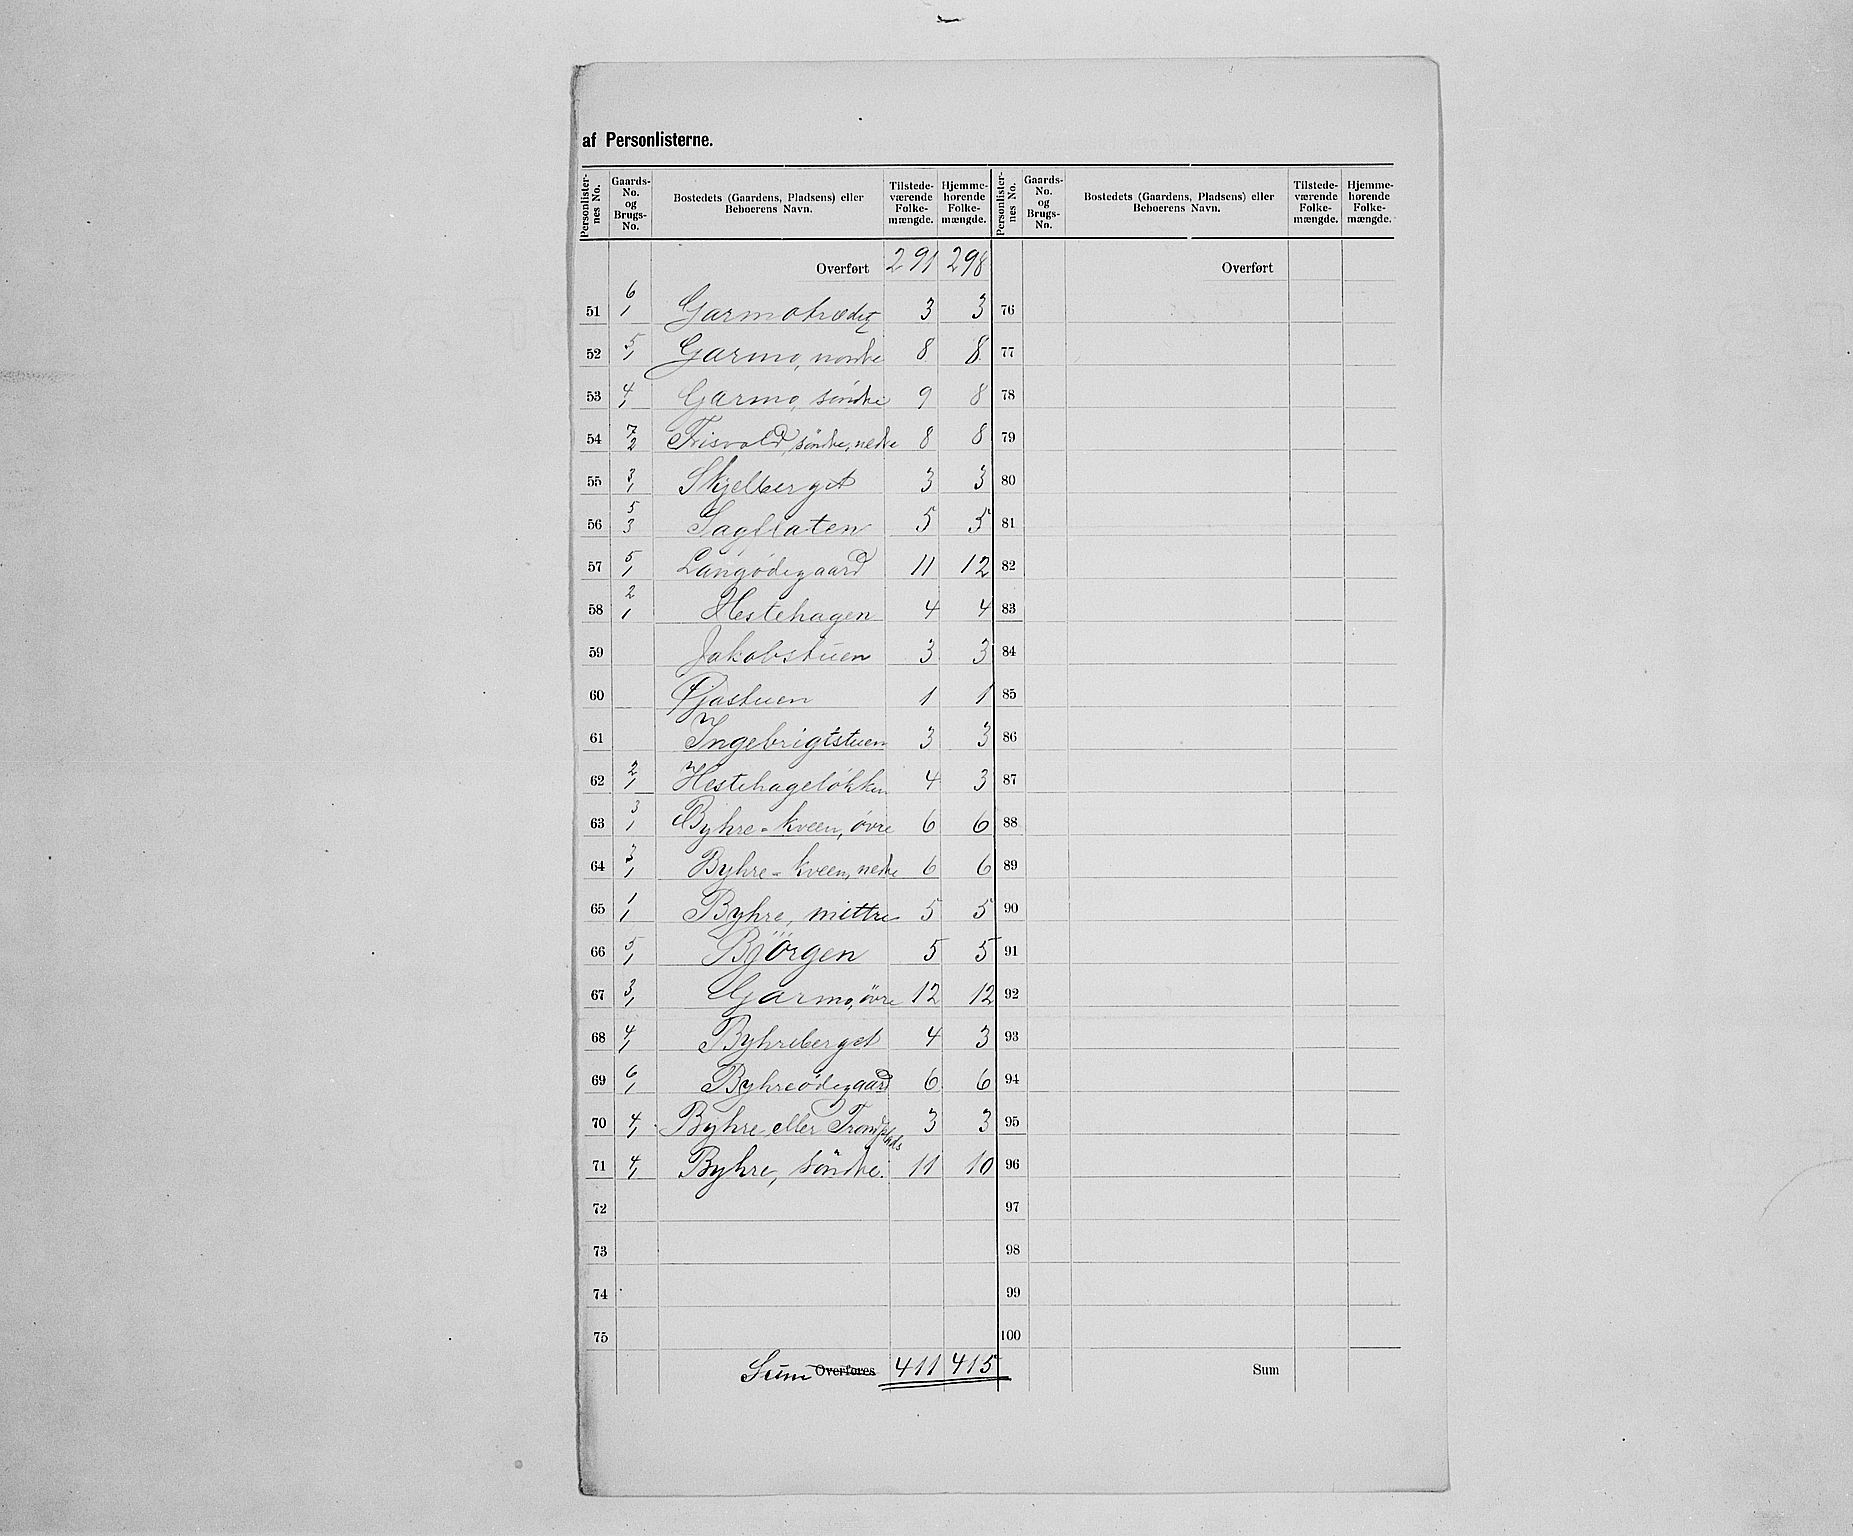 af Personlisterne.
Personlister-nes No. Gaards-No. og Brugs-No. Bostedets (Gaardens, Pladsens) eller Beboerens Navn. Tilstede-værende Folke-mængde. Hjemme-hørende Folke-mængde. Personlister-nes No. Gaards-No. og Brugs-No. Bostedets (Gaardens, Pladsens) eller Beboerens Navn. Tilstede-værende Folke-mængde. Hjemme-hørende Folke-mængde.
Overført 291 298 Overført
51 6/1 Garmotrædet 3 3 76
52 5/1 Garmo, nordre 8 8 77
53 4/1 Garmo, søndre 9 8 78
54 7/2 Frisvold, søndre, nedre 8 8 79
55 3/1 Skjelberget 3 3 80
56 5/3 Sagflaten 5 5 81
57 5/1 Langødegaard 11 12 82
58 2/1 Hestehagen 4 4 83
59 Jakobstuen 3 3 84
60 1 1 85
61 Ingebrigtstuen 3 3 86
62 2/1 Hestehageløkken 4 3 87
63 3/1 Byhre-kveen, øvre 6 6 88
64 3/1 Byhre-kveen, nedre 6 6 89
65 1/1 Byhre, mittre 5 5 90
66 5/1 Bjørgen 5 5 91
67 3/1 Garmo, øvre 12 12 92
68 4/1 Byhreberget 4 3 93
69 6/1 Byhreødegaard 6 6 94
70 4/1 Byhre eller 3 3 95
71 4/1 Byhre, søndre 11 10 96
72 97
73 98
74 99
75 100
Sum Overføres 411 415 Sum